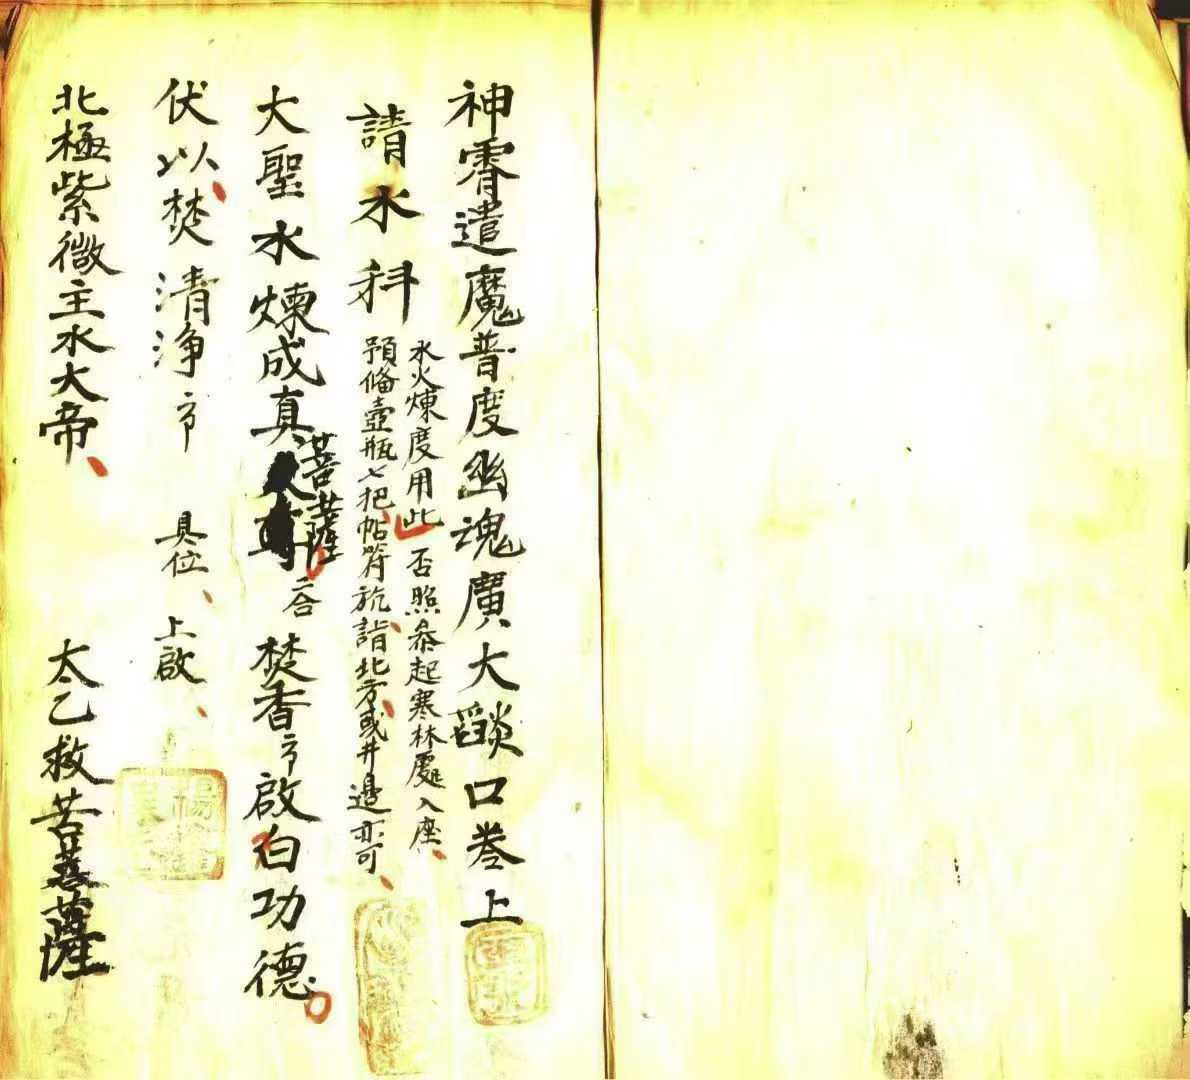 神霄遣魔普度幽魂廣大燄口卷上
請水科
水火煉度用此 否照叅起寒林處入座
預備壺瓶七把帖符於詣北方或井邊亦可
大聖水煉成真菩薩 二合 焚香 啟白功德
伏以焚清淨 具位 上啟
北極紫微主水大帝 太乙救苦菩薩